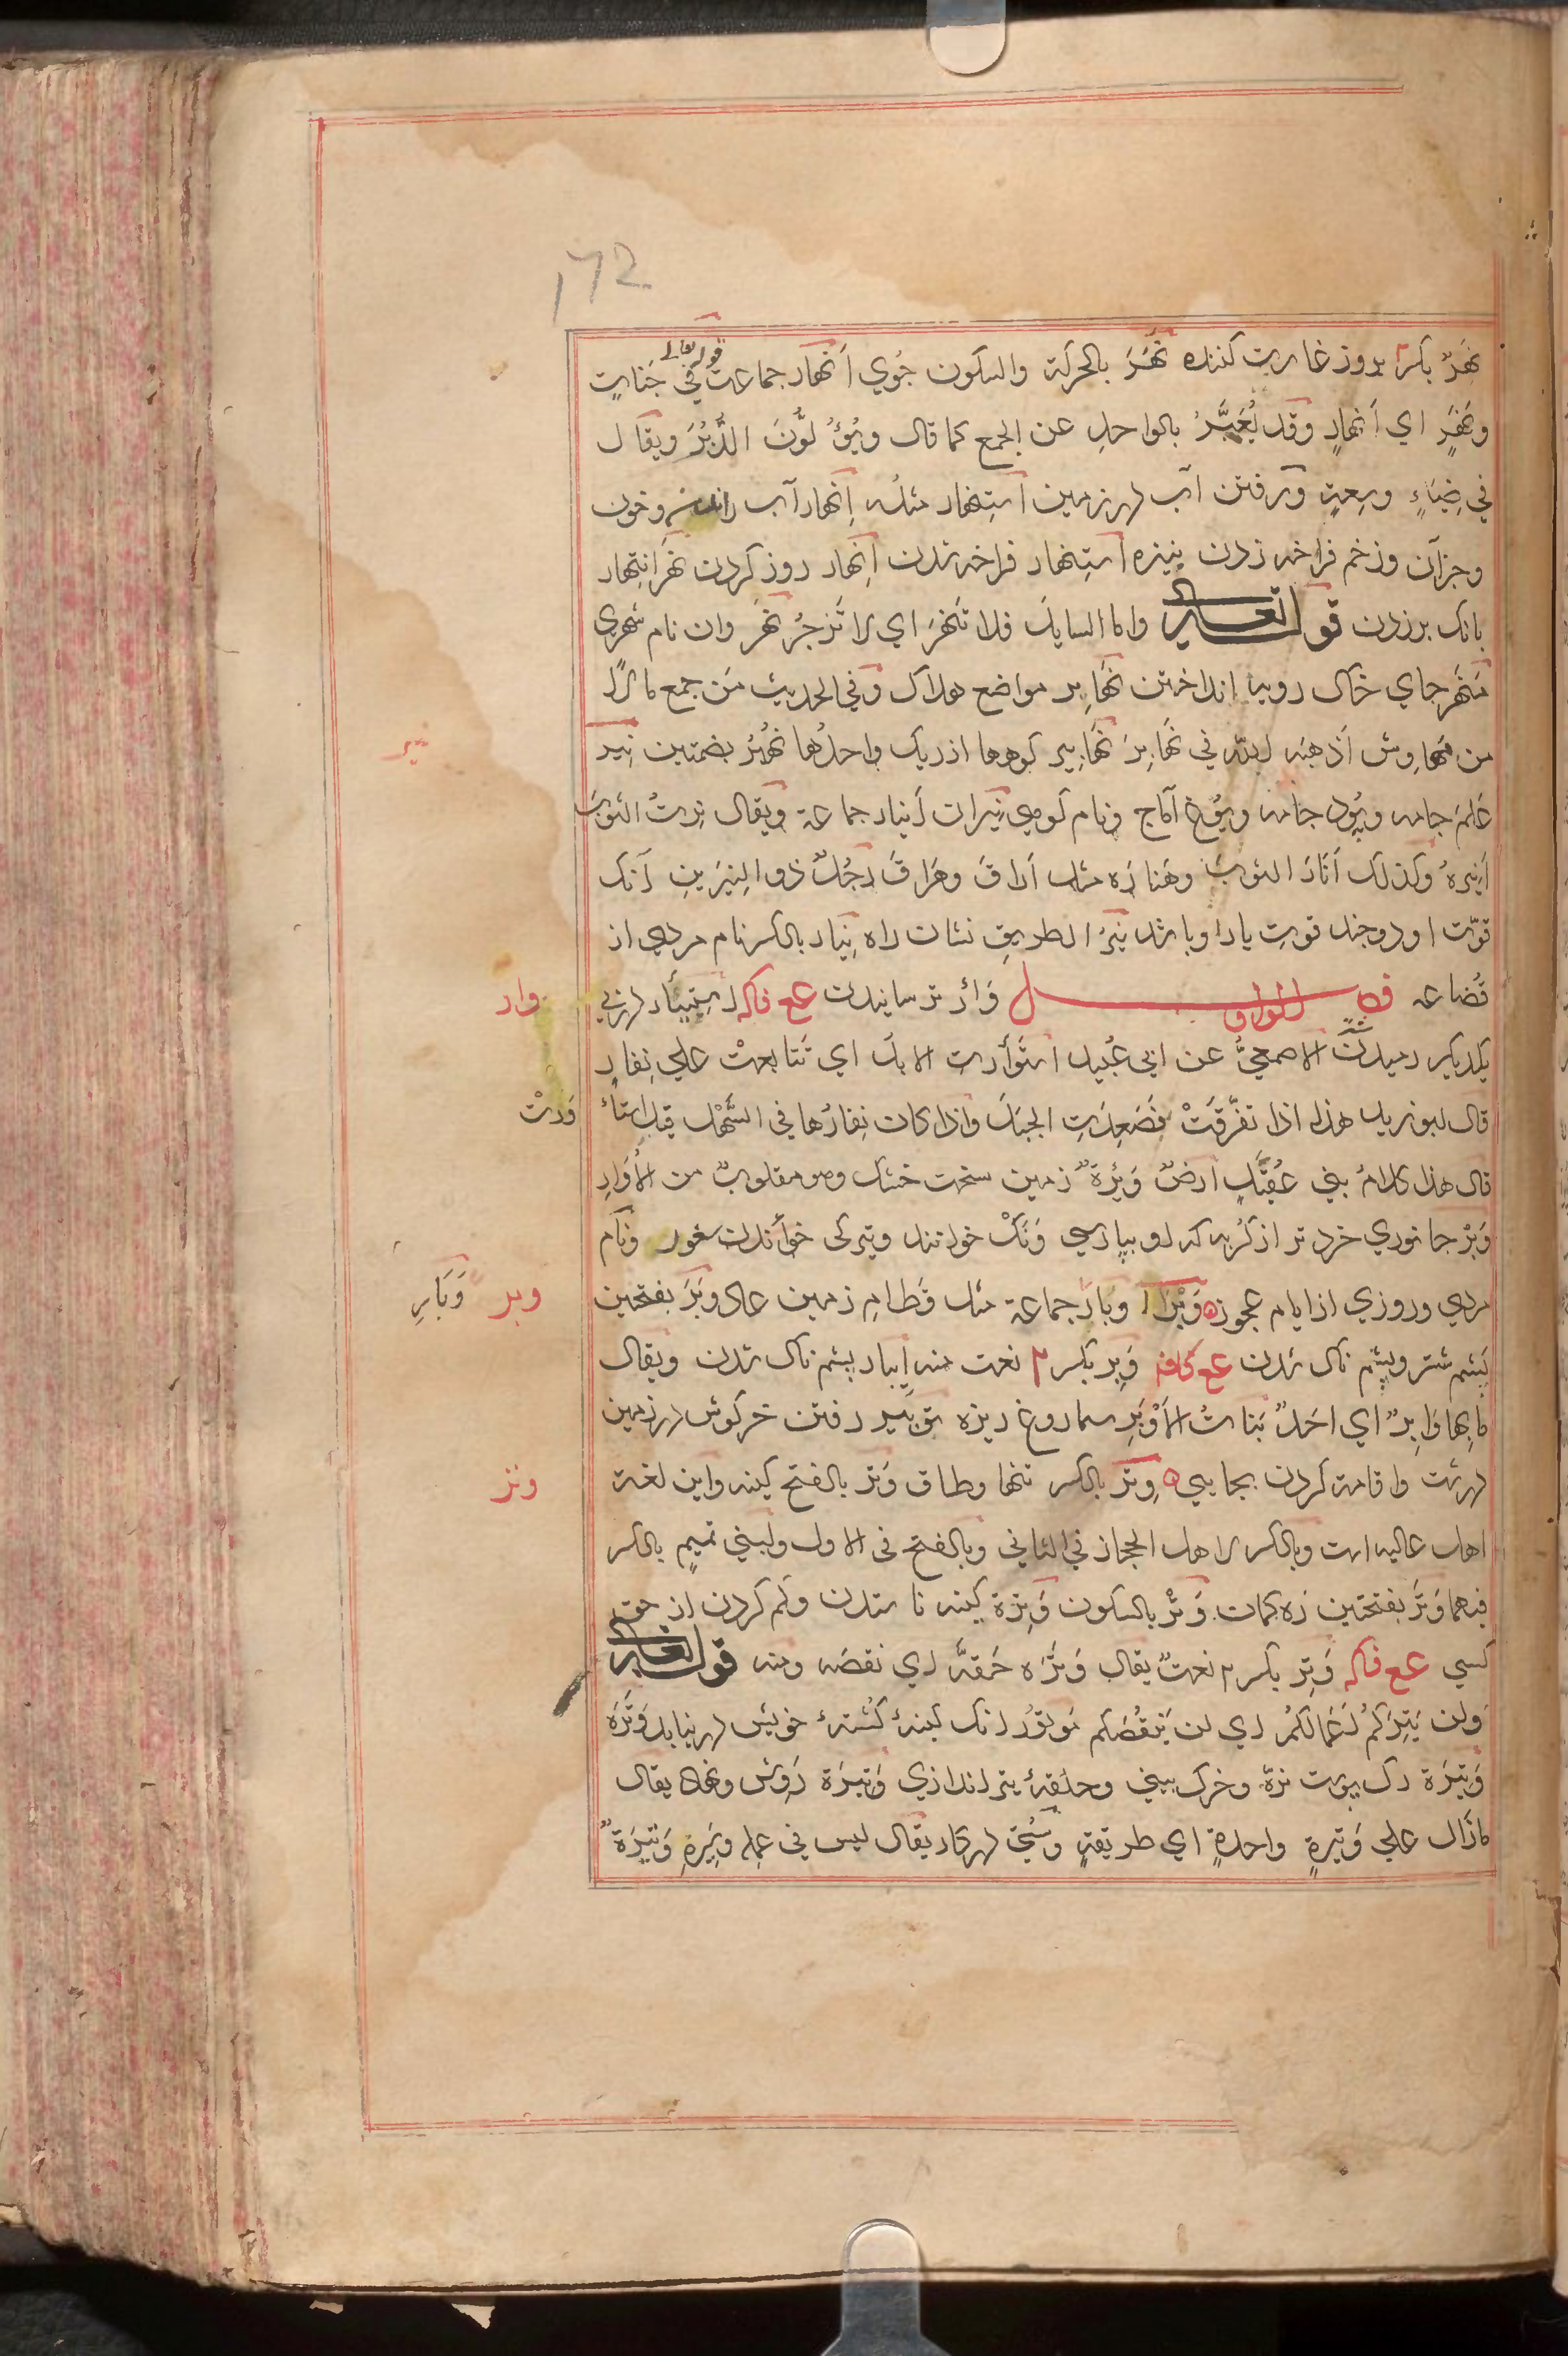 172
نَهِرٌ بکسر۲ بروز غارت کننده نَهَر بالحرکة والسکون جُوي أَنْهار جماعت قوله تعالی في جَنّاتٍ
ونَهَرٍ اي أَنهارٍ وَقَد يُعَبَّرُ بالواحدِ عن الجمع کما قال ويُوَلُّونَ الدُّبُرَ ويقال
في ضِيَاءٍ وسِعةٍ ورفتن آب در زمين استِنهار مثلُه إِنهار آب راندن وخون
وجزآن وزخم فراخ زدن بنيزه استِنهار فراخ شدن إِنهار روز کردن نَهْر انتِهار
بانک برزدن قوله تعالی واما السايل فلا تَنْهَرْ اي لا تَزْجُرْ نَهْر وان نام شهری
مَنْهَر جاي خاک روبه انداختن نَهَابِر مواضع هلاک وفي الحديث مَن جمع مالًا
من مَهاوِش أَذهبَه اللّه في نَهَابِرَ نَهَابِير کوهها از ريک واحدُها نُهْبُر بضمتين نِير
عَلَم جامه وپود جامه ويُوغ آماج ونام کوهی نِيران أَنيار جماعة ويقال نِرتُ الثوبَ
أَنِيرهُ وکذلک أَنَارَ الثوبَ وهَنارَه مثل أَراقَ وهَراقَ رَجُلٌ ذو النِيرَينِ آنک
قوّت او دو چند قوت يار او باشد نِيرُ الطريقِ نشان راه نِيار بالکسر نام مردی از
قُضاعه فصل الواو وَأر ترسانيدن عع فاکه استِيئار در پی
یکدیکر رميدن الاصمعيُّ عن ابي عُبيد استَوأَرتِ الابل اي تَتابعتْ علی نِفارٍ
قال ابو زيد هذا اذا تفرّقَتْ فصَعِدَتِ الجبَلَ واذا کان نِفارُها في السَّهْل قيل استَأ وَرتْ
قال هذا کلامُ بني عُقَيلٍ ارضٌ وَئِرَةٌ زمين سخت خشک وهو مقلوبٌ من الأُوَارِ
وَبْر جانوري خردتر از کُربه که او بپارسي وَنَکْ خوانند وترکی خوانند سغور ونام
مردی وروزي از ايام عجوز وَبْرَة وِبار جماعة مثل قَطامِ زمين عاد وَبَر بفتحتين
پَشم شتر وپشم ناک شدن عع کافه وَبِر بکسر۲ نعت منه إِيبار پشم ناک شدن ويقال
ما بها وَابِرٌ اي احَدٌ بَناتُ الأَوْبَرِ سماروغ ريزه تَوبِير رفتن خرکوش در زمين
درشت واقامت کردن بجايي وِتر بالکسر تنها وطاق وَتر بالفتح کينه واين لغة
اهل عاليه است وبالکسر لاهل الحجاز في الثاني وبالفتح في الاول ولبني تميمٍ بالکسر
فيهما وَتَر بفتحتين زه کمان وَتْر بالسکون وتِرة کينه ناستدن وکم کردن از حق
کسي عع فاکه وَتِر بکسر۲ نعتٌ يقال وَتَرَه حَقَّه اي نقصَه ومنه قوله تعالی
وَلن يَتِرَکُمْ أَعمالَکُم اي لن يَنْقُصَکم مَوتُورٌ انک کينهٔ کُشتهٔ خويش در نيابد وَتَرَه
وَتِيرَة رک پوست نرّه وخرک بيني وحلقهٔ تيراندازي وَتيرَة رَوِش ونهاد يقال
مازال علی وَتيرةٍ واحدةٍ اي طريقةٍ وسُستي در کار يقال ليس في عمله وَتِيرَةٌ
نير
وار
وَرتْ
وبر وَبَارِ
وتر